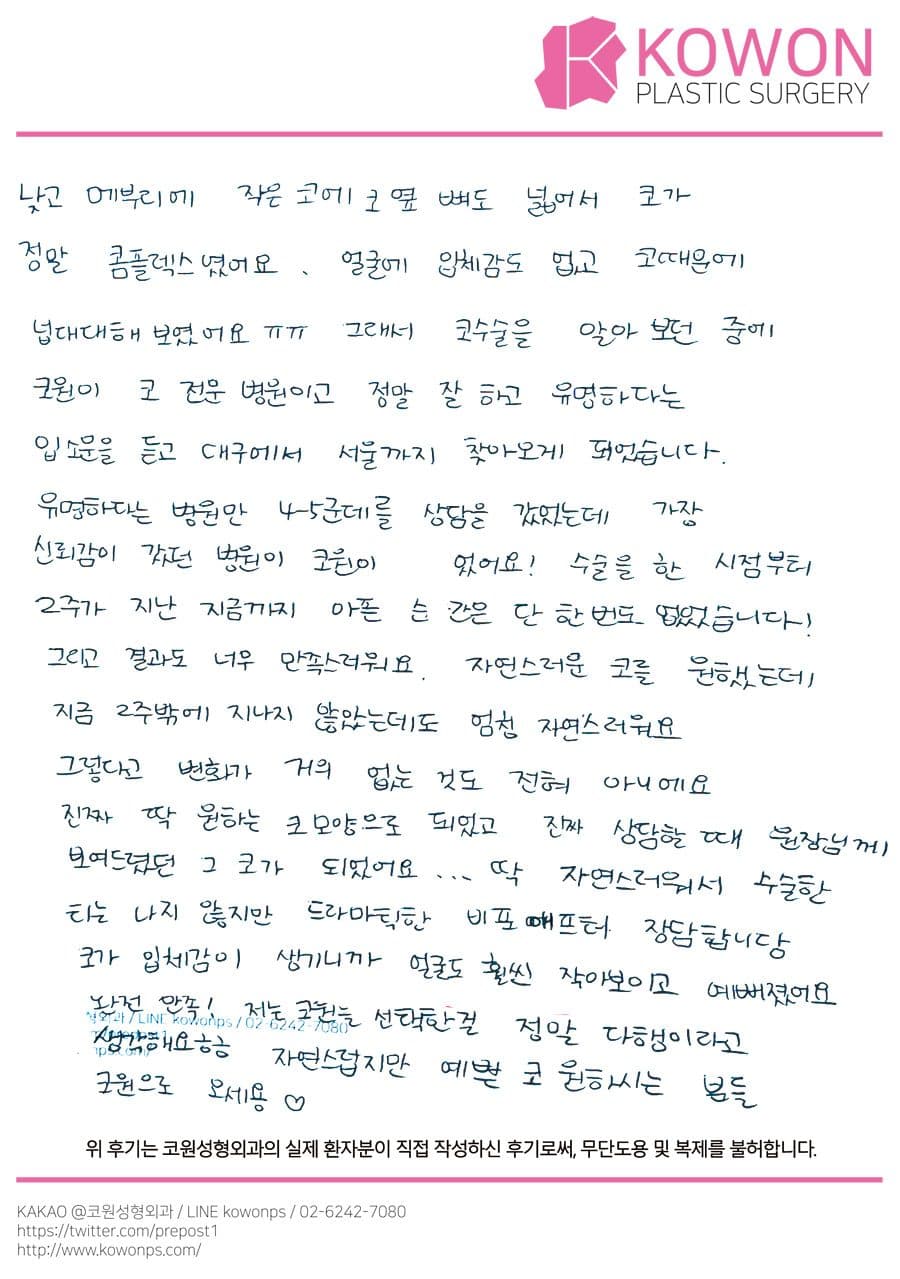 KOWON
PLASTIC SURGERY
낮고 메부리에 작은 코에 코 옆 뼈도 넓어서 코가
정말 콤플렉스였어요. 얼굴에 입체감도 없고 코때문에
넙대대해 보였어요 ㅠㅠ 그래서 코수술을 알아 보던 중에
코원이 코 전문 병원이고 정말 잘 하고 유명하다는
입소문을 듣고 대구에서 서울까지 찾아오게 되었습니다.
유명하다는 병원만 4-5군데를 상담을 갔었는데 가장
신뢰감이 갔던 병원이 코원이 었어요! 수술을 한 시점부터
2주가 지난 지금까지 아픈 순간은 단 한번도 없었습니다!
그리고 결과도 너무 만족스러워요. 자연스러운 코를 원했는데,
지금 2주밖에 지나지 않았는데도 엄청 자연스러워요
그렇다고 변화가 거의 없는 것도 전혀 아니에요
진짜 딱 원하는 코모양으로 되었고 진짜 상담할 때 원장님께
보여드렸던 그 코가 되었어요... 딱 자연스러워서 수술한
티는 나지 않지만 드라마틱한 비포애프터 장담합니당
코가 입체감이 생기니까 얼굴도 훨씬 작아보이고 예뻐졌어요
완전 만족! 저는 코원을 선택한걸 정말 다행이라고
생각해요ㅎㅎ 자연스럽지만 예쁜 코 원하시는 분들
코원으로 오세용 ♡
/ LINE kowonps / 02-6242-7080
위 후기는 코원성형외과의 실제 환자분이 직접 작성하신 후기로써, 무단도용 및 복제를 불허합니다.
KAKAO @코원성형외과 / LINE kowonps / 02-6242-7080
https://twitter.com/prepost1
http://www.kowonps.com/